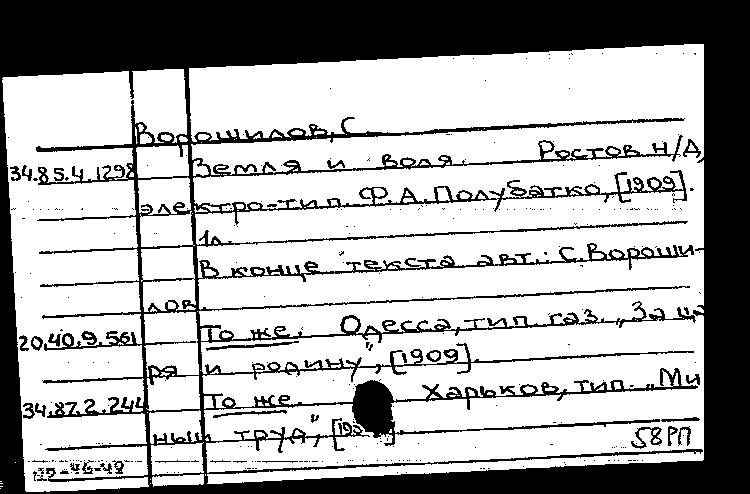 Ворошилов, С.
34.85.4.1298 Земля и воля. Ростов н/Д,
электро-тип. Ф.А.Полубатко, [1909].
1л.
В конце текста авт.: С.Вороши-
лов.
20.40.9.561 То же. Одесса, тип. газ. „За ца
ря и родину", [1909].
34.87.2.244 То же. Харьков, тип. „Ми
ный труд",
58РП